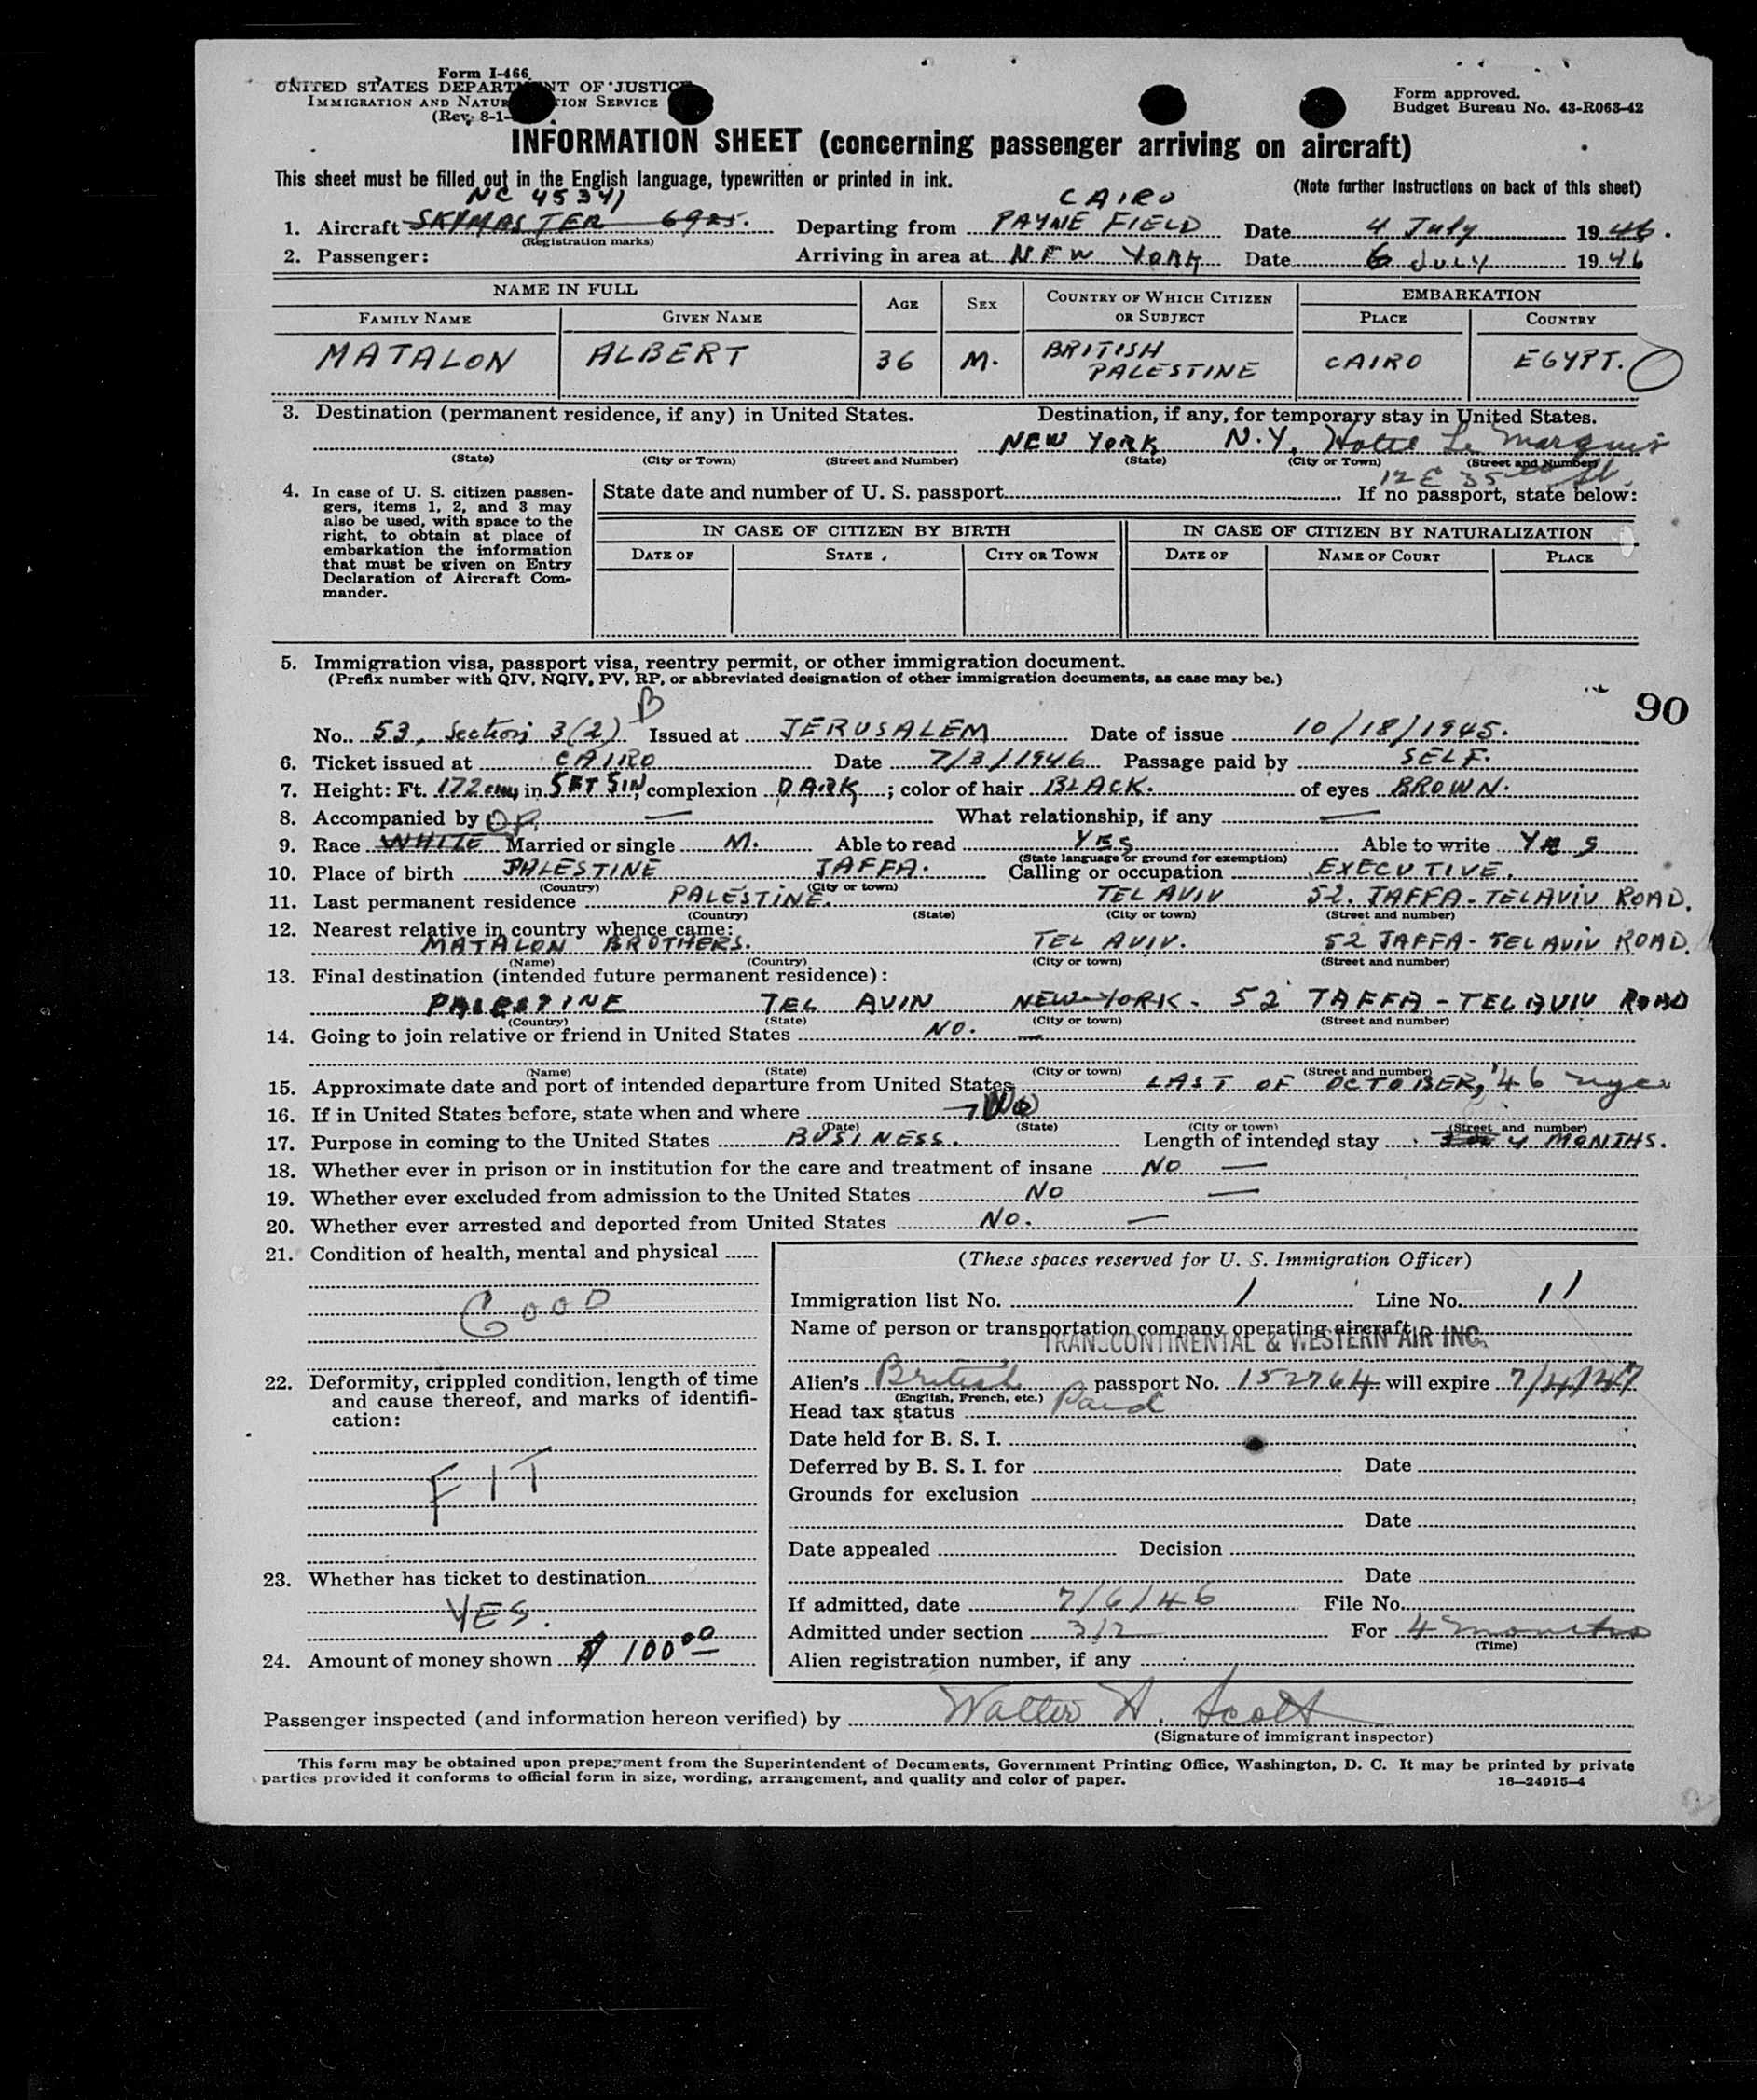 Form I-466
UNITED STATES DEPARTMENT OF JUSTICE
IMMIGRATION AND NATURALIZATION SERVICE
(Rev. 8-1-
Form approved.
Budget Bureau No. 43-R063-42
INFORMATION SHEET (concerning passenger arriving on aircraft)
This sheet must be filled out in the English language, typewritten or printed in ink.
(Note further instructions on back of this sheet)
NC 45341 CAIRO
1. Aircraft SKYMASTER 6925. Departing from PAYNE FIELD Date 4 July 1946.
(Registration marks)
2. Passenger: Arriving in area at NEW YORK Date 6 JULY 1946
NAME IN FULL AGE SEX COUNTRY OF WHICH CITIZEN OR SUBJECT EMBARKATION
FAMILY NAME GIVEN NAME PLACE COUNTRY
MATALON ALBERT 36 M. BRITISH PALESTINE CAIRO EGYPT.
3. Destination (permanent residence, if any) in United States. Destination, if any, for temporary stay in United States.
NEW YORK N.Y. Hotel Le Marquis
(State) (City or Town) (Street and Number) (State) (City or Town) (Street and Number)
12 E 35 St.
4. In case of U. S. citizen passengers, items 1, 2, and 3 may also be used, with space to the right, to obtain at place of embarkation the information that must be given on Entry Declaration of Aircraft Commander.
State date and number of U. S. passport If no passport, state below:
IN CASE OF CITIZEN BY BIRTH IN CASE OF CITIZEN BY NATURALIZATION
DATE OF STATE CITY OR TOWN DATE OF NAME OF COURT PLACE
5. Immigration visa, passport visa, reentry permit, or other immigration document.
(Prefix number with QIV, NQIV, PV, RP, or abbreviated designation of other immigration documents, as case may be.)
90
B
No. 53, Section 3(2) Issued at JERUSALEM Date of issue 10/18/1945.
6. Ticket issued at CAIRO Date 7/3/1946 Passage paid by SELF.
7. Height: Ft. 172 cms in 5FT 5IN, complexion DARK; color of hair BLACK. of eyes BROWN.
8. Accompanied by — What relationship, if any —
9. Race WHITE Married or single M. Able to read YES Able to write YES
(State language or ground for exemption)
10. Place of birth PALESTINE JAFFA. Calling or occupation EXECUTIVE.
(Country) (City or town)
11. Last permanent residence PALESTINE. TEL AVIV 52. JAFFA-TELAVIV ROAD.
(Country) (State) (City or town) (Street and number)
12. Nearest relative in country whence came:
MATALON BROTHERS. TEL AVIV. 52 JAFFA-TELAVIV ROAD.
(Name) (Country) (City or town) (Street and number)
13. Final destination (intended future permanent residence):
PALESTINE TEL AVIN NEW-YORK. 52 JAFFA-TELAVIV ROAD
(Country) (State) (City or town) (Street and number)
14. Going to join relative or friend in United States NO. —
(Name) (State) (City or town) (Street and number)
15. Approximate date and port of intended departure from United States LAST OF OCTOBER, '46 nyc
16. If in United States before, state when and where No
(Date) (State) (City or town) (Street and number)
17. Purpose in coming to the United States BUSINESS. Length of intended stay 4 MONTHS.
18. Whether ever in prison or in institution for the care and treatment of insane NO —
19. Whether ever excluded from admission to the United States NO —
20. Whether ever arrested and deported from United States NO. —
21. Condition of health, mental and physical
GOOD
22. Deformity, crippled condition, length of time and cause thereof, and marks of identification:
FIT
23. Whether has ticket to destination
YES.
24. Amount of money shown $ 100 00
(These spaces reserved for U. S. Immigration Officer)
Immigration list No. 1 Line No. 11
Name of person or transportation company operating aircraft
TRANSCONTINENTAL & WESTERN AIR INC.
Alien's British passport No. 152764 will expire 7/4/47
(English, French, etc.)
Head tax status Paid
Date held for B. S. I.
Deferred by B. S. I. for Date
Grounds for exclusion
Date
Date appealed Decision
Date
If admitted, date 7/6/46 File No.
Admitted under section 3/2 For 4 months
(Time)
Alien registration number, if any
Passenger inspected (and information hereon verified) by Walter A. Scott
(Signature of immigrant inspector)
This form may be obtained upon prepayment from the Superintendent of Documents, Government Printing Office, Washington, D. C. It may be printed by private
parties provided it conforms to official form in size, wording, arrangement, and quality and color of paper. 16—24915-4